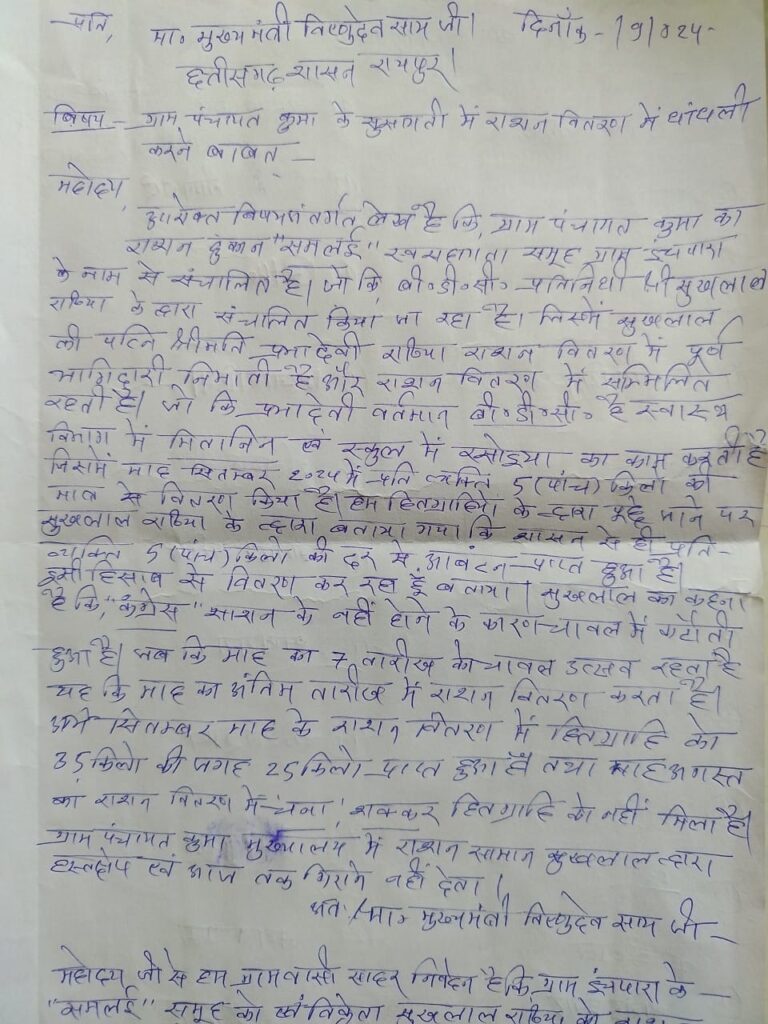 प्रति,
मा० मुख्यमंत्री विष्णुदेव साय जी। दिनाँक - /9/2024-
छत्तीसगढ़ शासन रायपुर।
विषय - ग्राम पंचायत कुमा के सुसगती में राशन वितरण में धांधली
करने बाबत् -
महोदय,
उपरोक्त विषयांतर्गत लेख है कि, ग्राम पंचायत कुमा का
राशन दुकान "समलाई" स्व सहायता समूह ग्राम
के नाम से संचालित है। जो कि, बी० डी० सी० प्रतिनिधी श्री सुखलाल
राठिया के द्वारा संचालित किया जा रहा है। जिसमें सुखलाल
की पत्नि श्रीमति प्रभादेवी राठिया राशन वितरण में पूर्ण
भागिदारी निभाती है और राशन वितरण में सम्मिलित
रहती है। जो कि प्रभादेवी वर्तमान बी० डी० सी० है स्वास्थ
विभाग में मितानिन एवं स्कुल में रसोइया का काम करती है
जिसमें माह सितम्बर 2024 में प्रति व्यक्ति 5 (पांच) किलो की
मात्र से वितरण किया है। हम हितग्राहियो के द्वारा पूछे जाने पर
सुखलाल राठिया के द्वारा बताया गया कि शासन से ही प्रति-
व्यक्ति 5 (पांच) किलो की दर से आबंटन प्राप्त हुआ है।
इसी हिसाब से वितरण कर रहा हूँ बताया। सुखलाल का कहना
है कि, "कंग्रेस" शासन के नहीं होने के कारण चावल में कटौती
हुआ है। जब कि माह का 7 तारीख को चावल उत्सव रहता है
यह कि माह का अंतिम तारीख में राशन वितरण करता है।
सितम्बर माह के राशन वितरण में हितग्राहि को
35 किलो की जगह 25 किलो प्राप्त हुआ है तथा माह अगस्त
का राशन वितरण में चना, शक्कर हितग्राहि को नहीं मिला है।
ग्राम पंचायत कुमा मुख्यालय में राशन सामान सुखलाल द्वारा
हस्तक्षेप एवं आज तक गिराने नहीं देता।
अतः मा० मुख्यमंत्री विष्णुदेव साय जी -
महोदय जी से हम ग्रामवासी सादर निवेदन है कि, ग्राम के -
"समलाई" समूह को एवं विक्रेता सुखलाल राठिया को